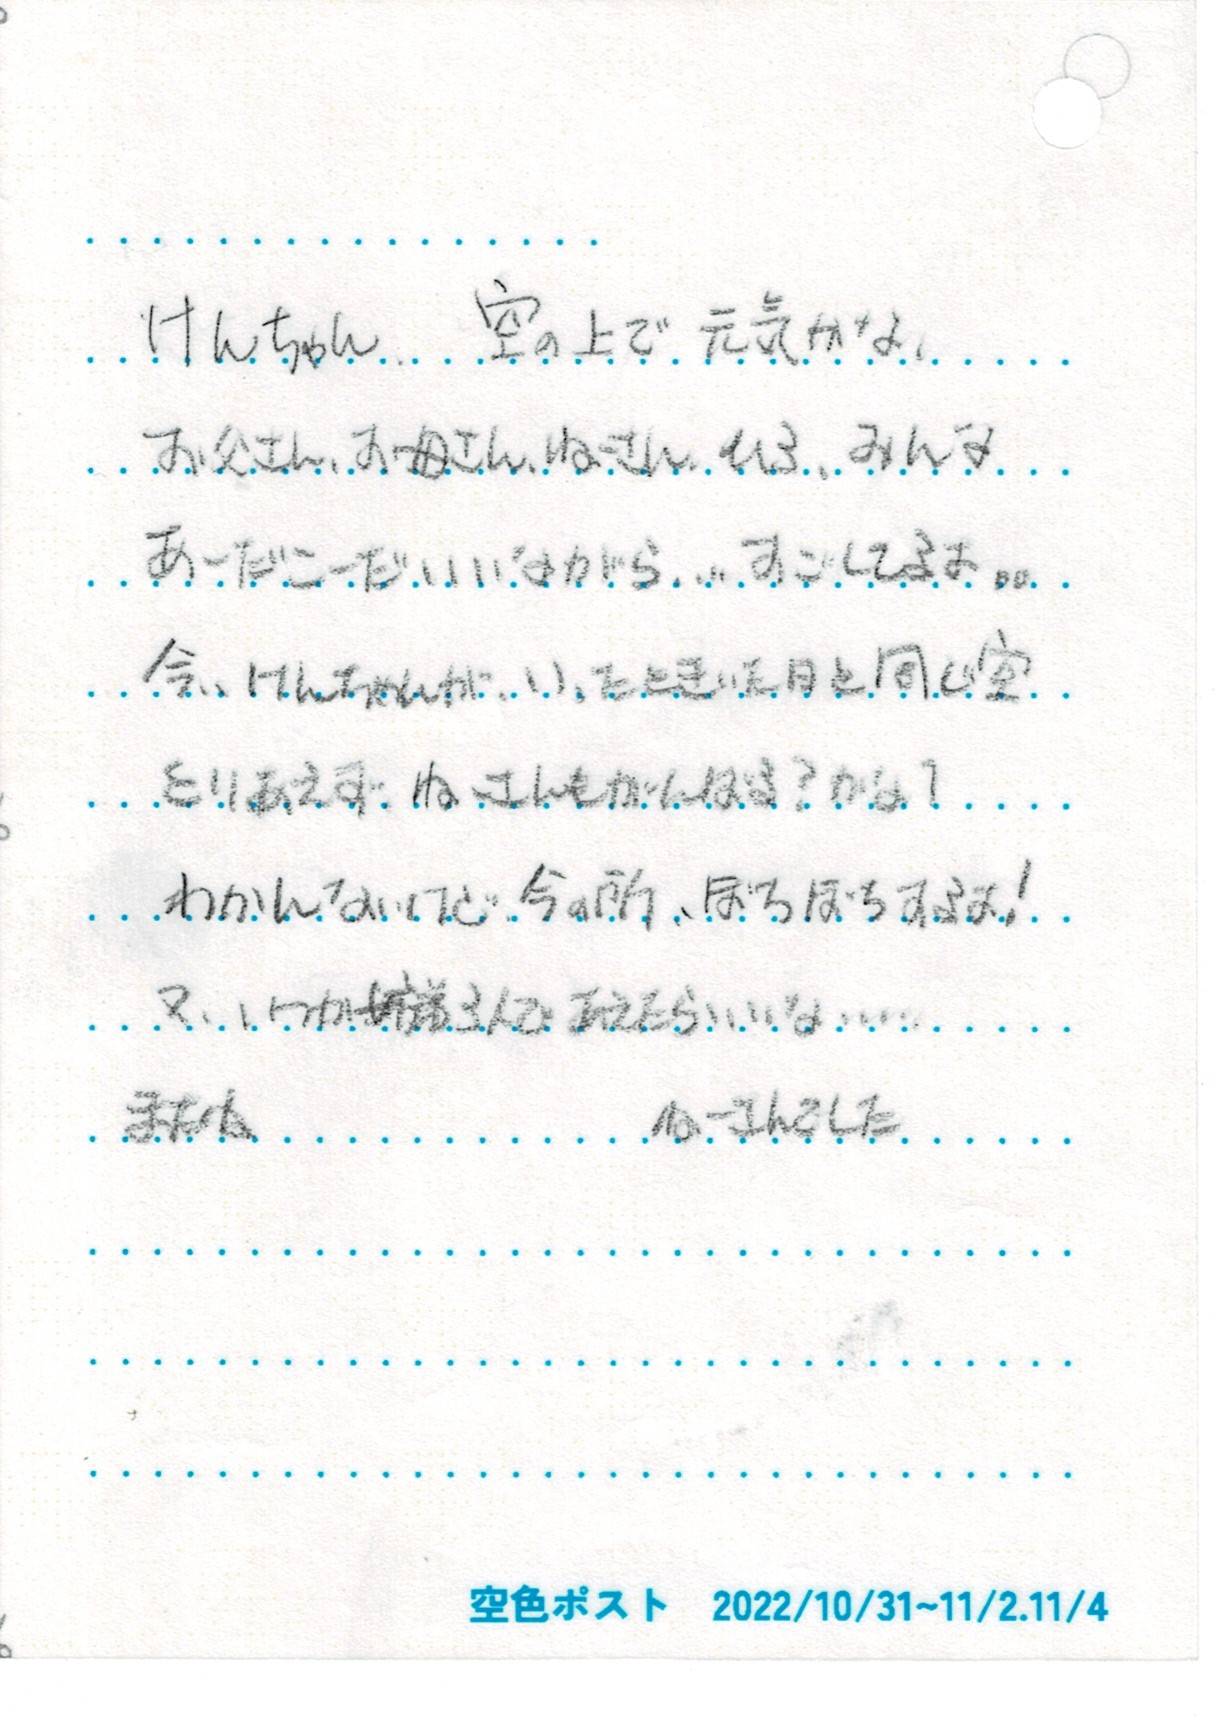 けんちゃん、 空の上で 元気かな、
お父さん、お母さん、ねーさん、ひろ、みんな
あーだこーだいいながら... すごしてるよ。。
今、けんちゃんが、いったときいた日と同じ空
とりあえず、ねーさんもがんばる?かな?
わかんないけど 今の所、ぼちぼちするよ!
又、いつか姉弟3人で あえたらいいな.....
またね ねーさんでした
空色ポスト 2022/10/31~11/2.11/4